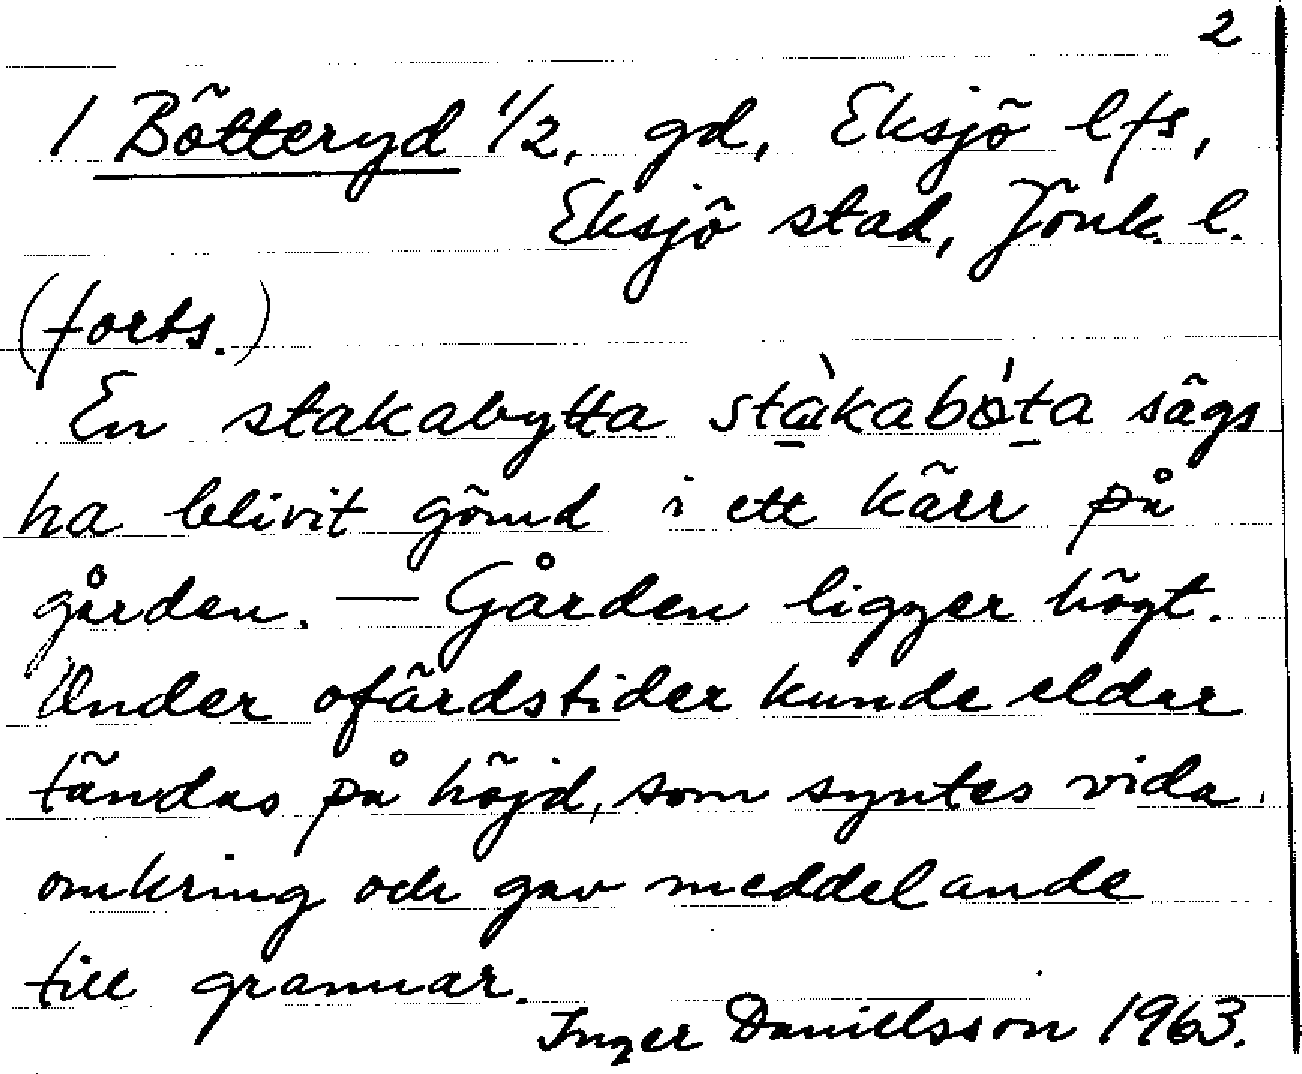 2
1 Bötteryd 1/2, gd, Eksjö lfs,
Eksjö stad, Jönk. l.
(forts.)
En stakabytta stàkabɵ́ta sägs
ha blivit gömd i ett kärr på
gården. — Gården ligger högt.
Under ofärdstider kunde eldar
tändas på höjd, som syntes vida
omkring och gav meddelande
till grannar.
Inger Daniellsson 1963.